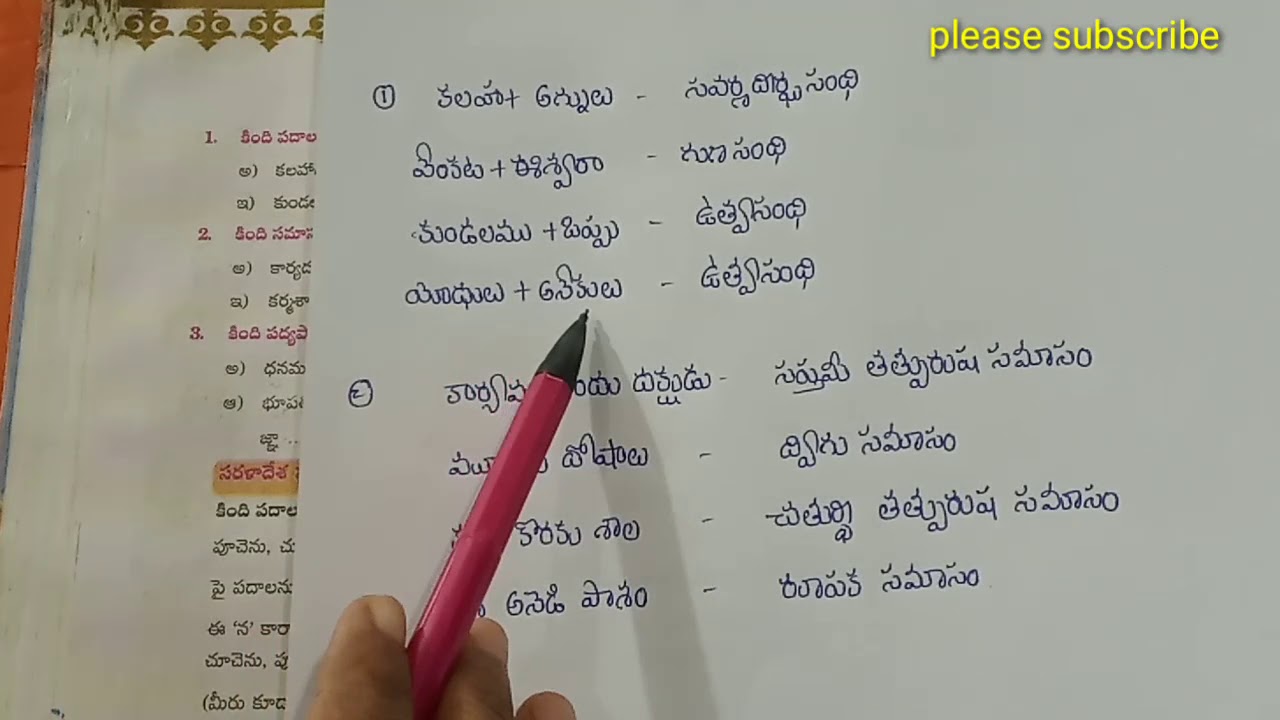 please subscribe
① కలహా + అగ్నులు - సవర్ణదీర్ఘ సంధి
వేంకట + ఈశ్వరా - గుణ సంధి
కుండలము + ఒప్పు - ఉత్వసంధి
యోధులు + అనేకులు - ఉత్వసంధి
② దక్షుడు - సప్తమీ తత్పురుష సమాసం
దోషాలు - ద్విగు సమాసం
కొరకు శాల - చతుర్థి తత్పురుష సమాసం
అనెడి పాశం - రూపక సమాసం
1. కింది పదాల
అ) కలహా
ఇ) కుండల
2. కింది సమాస
అ) కార్యద
ఇ) కర్మశా
3. కింది పద్యపా
అ) ధనమ
ఆ) భూపతి
జ్ఞా ..
సరళాదేశ
కింది పదాల
పూచెను, చు
పై పదాలను
ఈ 'న' కారా
చూచెను, పు
(మీరు కూడ